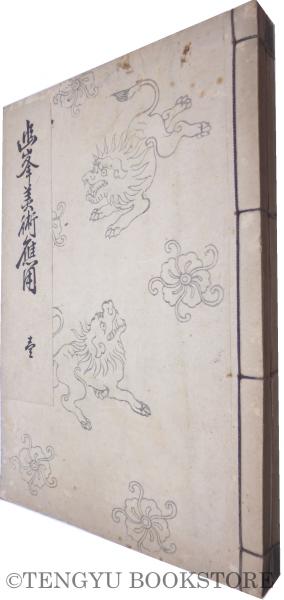 幽峯美術應用
壱
©TENGYU BOOKSTORE